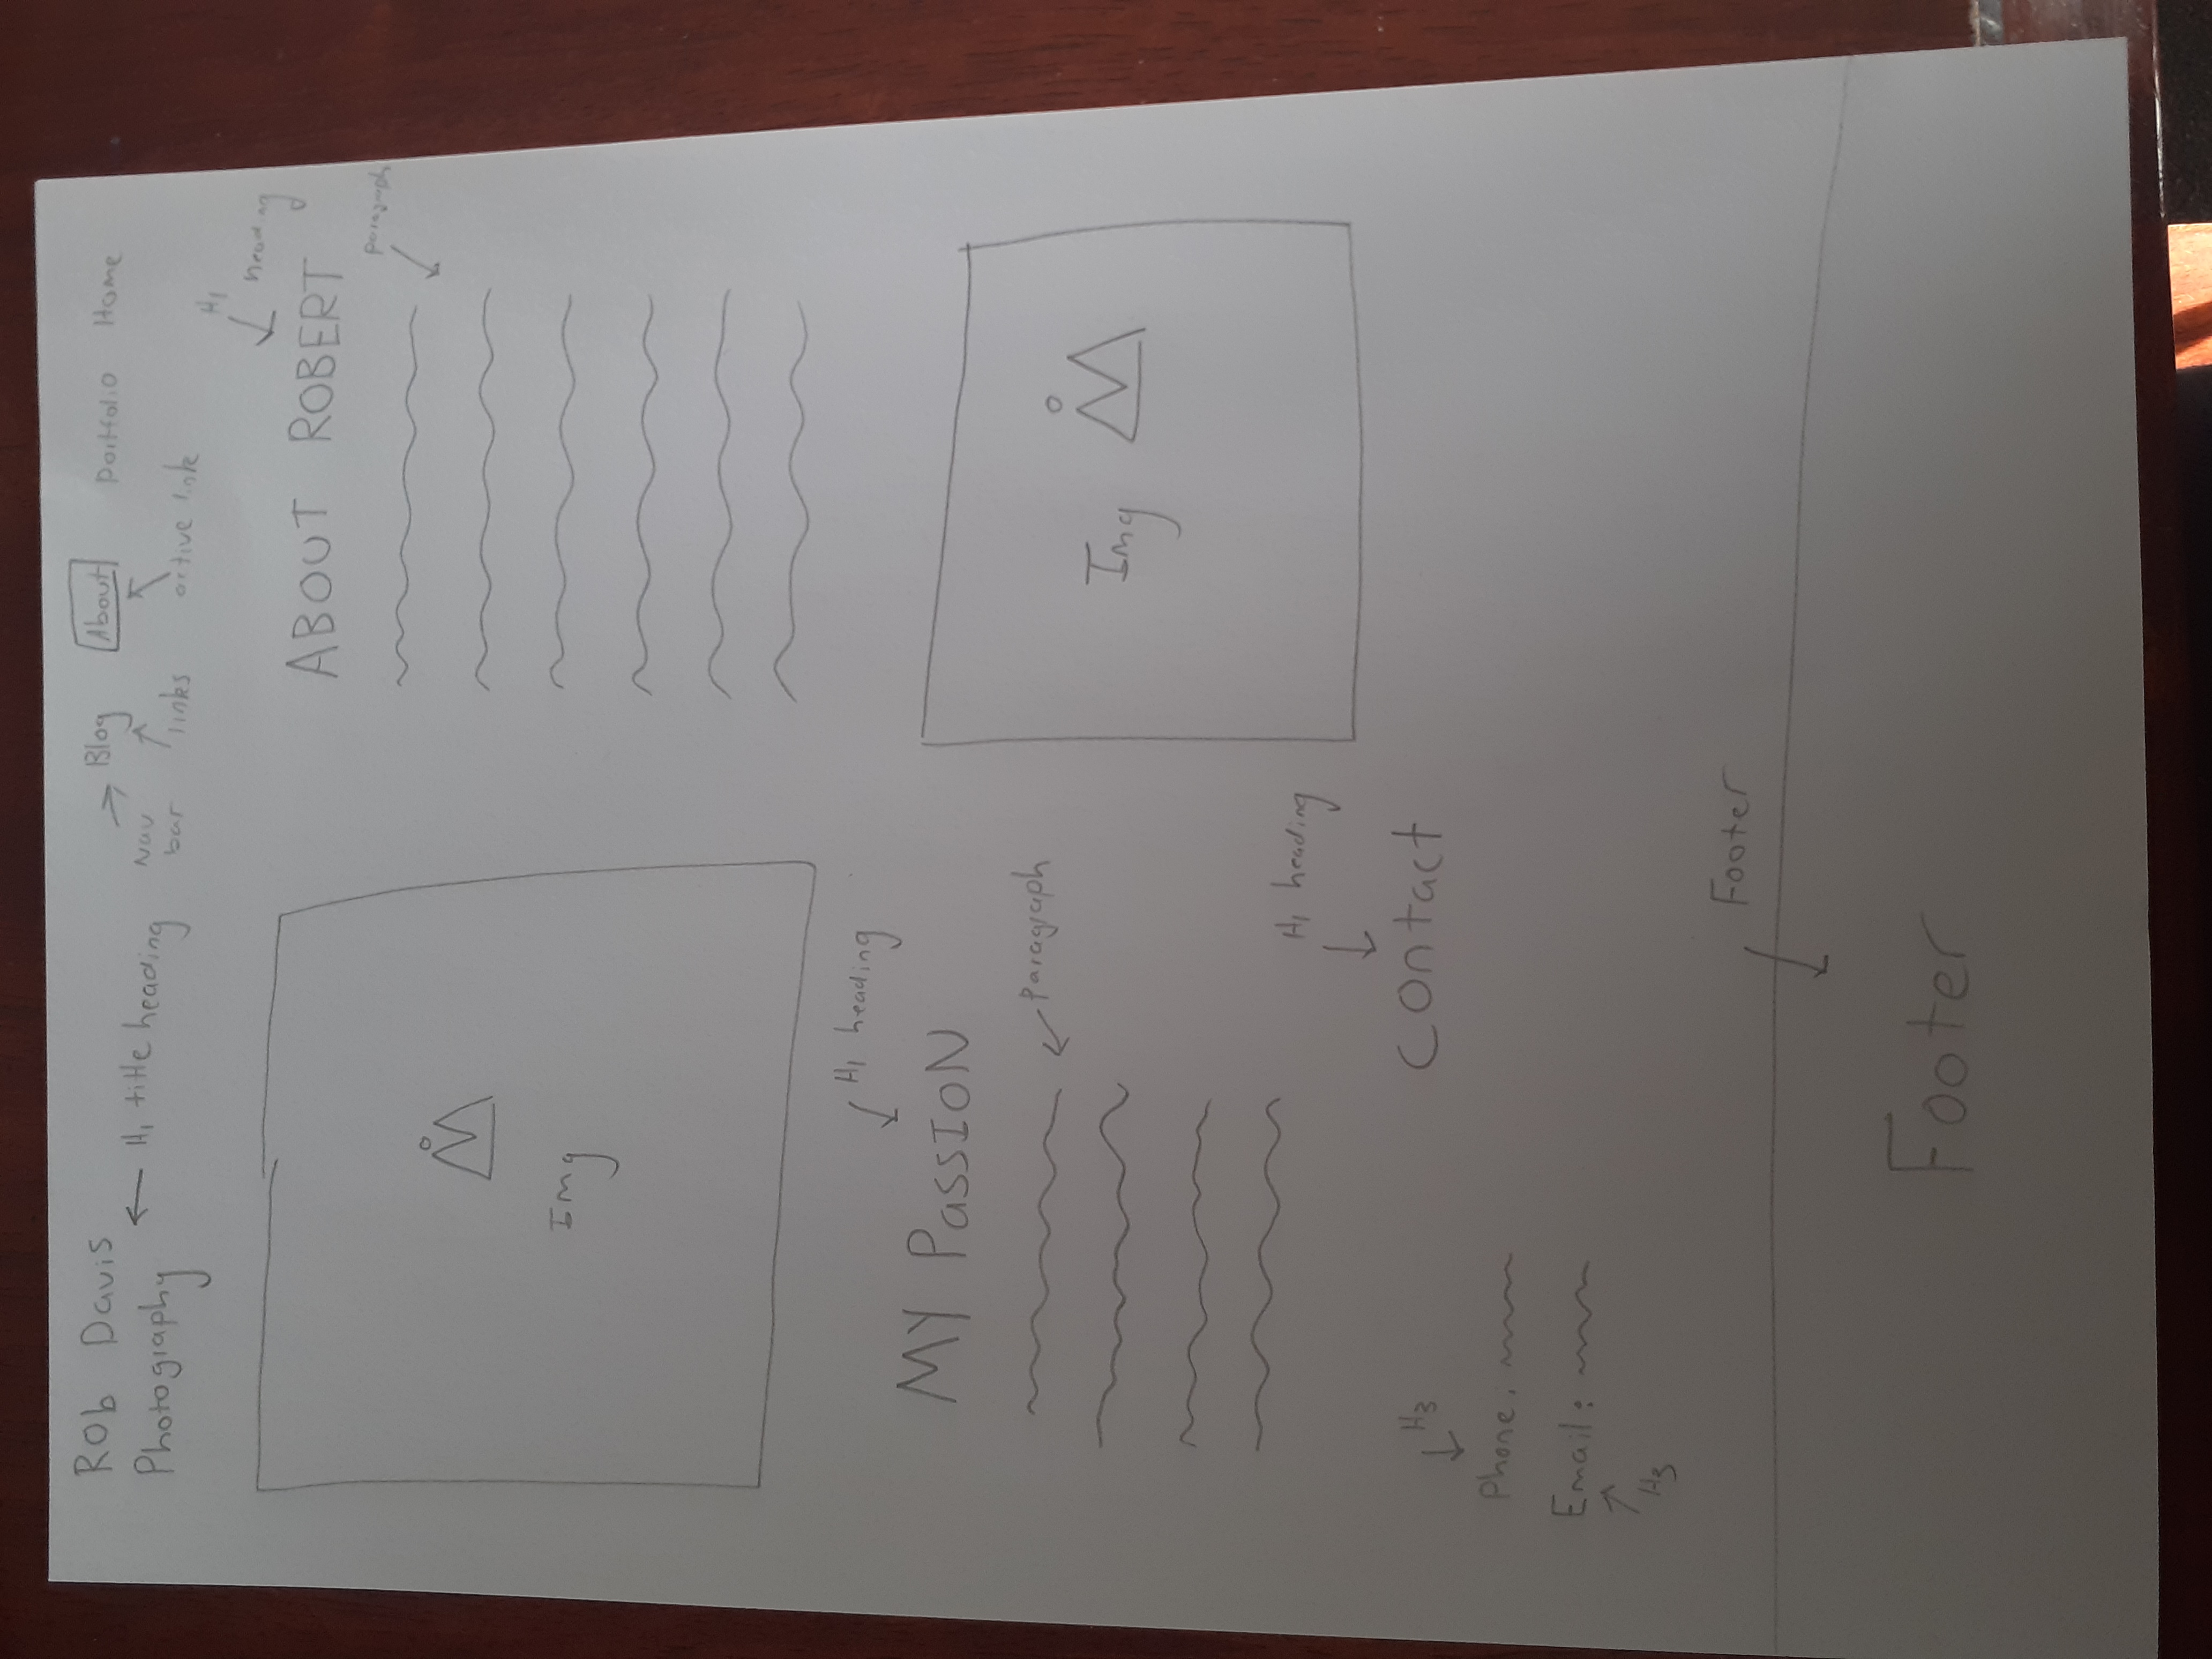 Rob Davis
Photography
← H1 title heading
Nav
bar
→ Blog
About
Portfolio
Home
links
active link
H1
heading
ABOUT ROBERT
paragraph
Img
H1 heading
MY PASSION
Paragraph
Img
H1 heading
Contact
H3
Phone.
Email:
H3
Footer
Footer